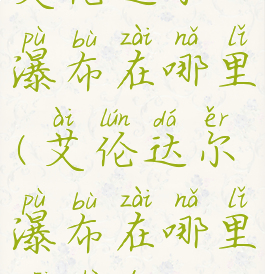 pù bù zài nǎ lǐ
瀑布在哪里
ài lún dá ěr
(艾伦达尔
pù bù zài nǎ lǐ
瀑布在哪里